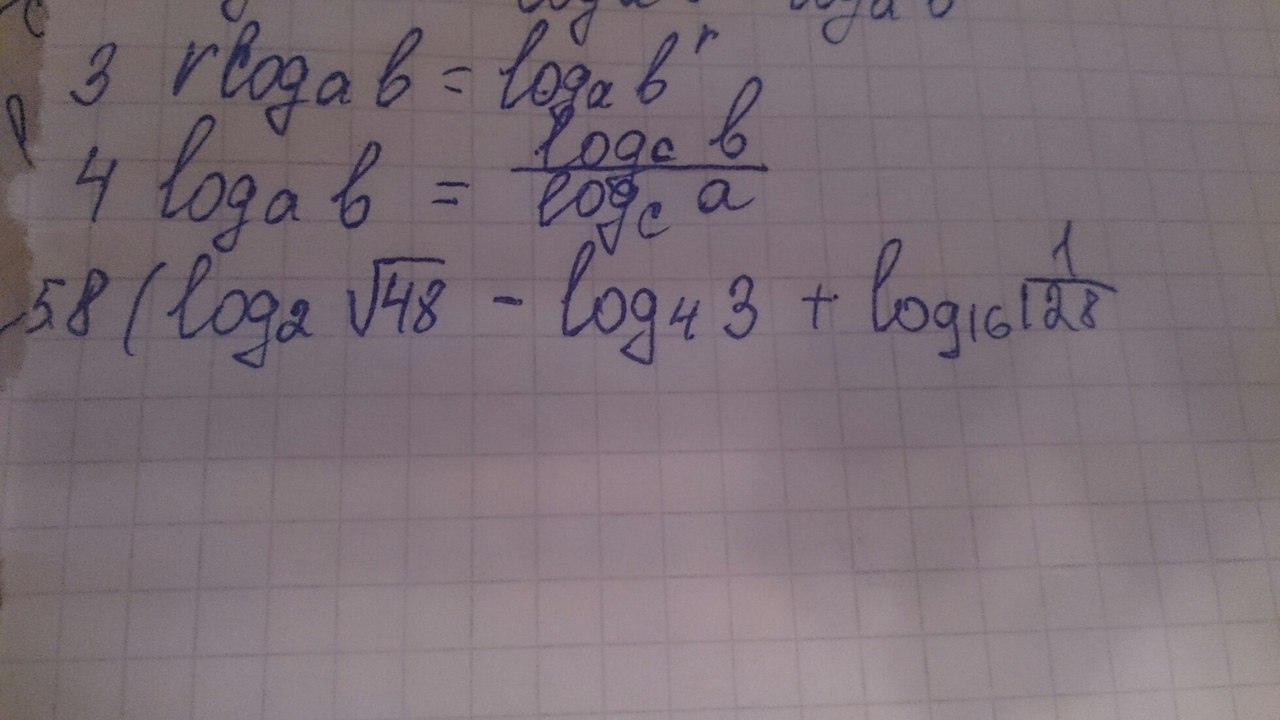 3 r log_a b = log_a b^r
4 log_a b = \frac{log_c b}{log_c a}
58 ( log_2 √48 - log_4 3 + log_16 \frac{1}{128}